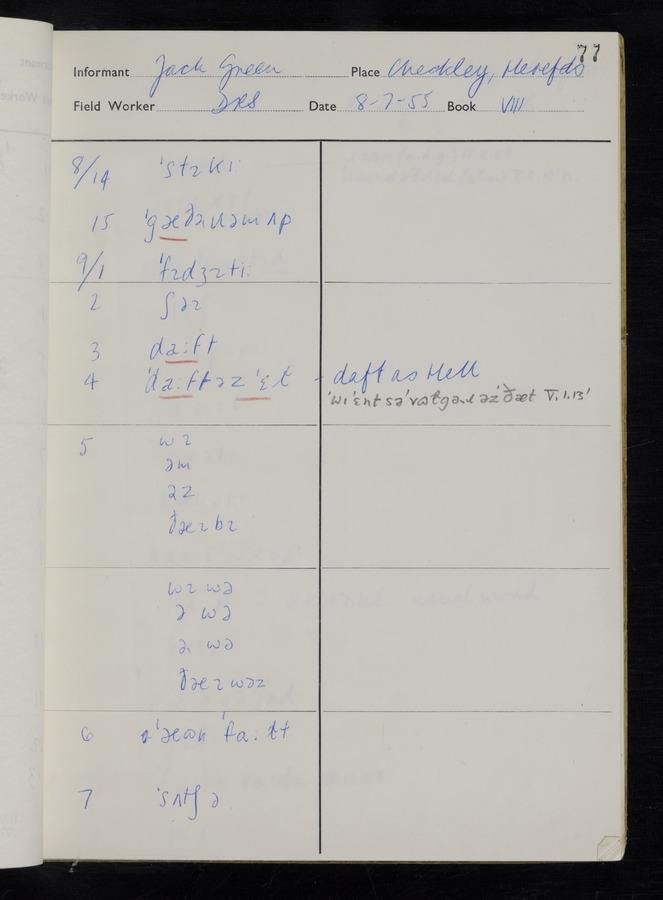 77
Informant Jack Green Place Checkley, Herefds
Field Worker DRS Date 8-7-55 Book VIII
8/14 ˈstɪkɪ
15 ˈgæðəɹəmʌp
9/1 ˈfɪdʒɪtɪ
2 ʃəɪ
3 da:ft
4 ˈda:ftəz ˈɛɫ - daft as Hell
ˈwɪ ˈɛnt sə ˈvatgəɹɫ əz ˈðæt V.1.13'
5 wɪ
əm
əz
ðæɪ bɪ
wɪ wə
ə wə
əɪ wə
ðæɪ wəz
6 ˈæwn ˈfa:ɫt
7 ˈsʌtʃ ə